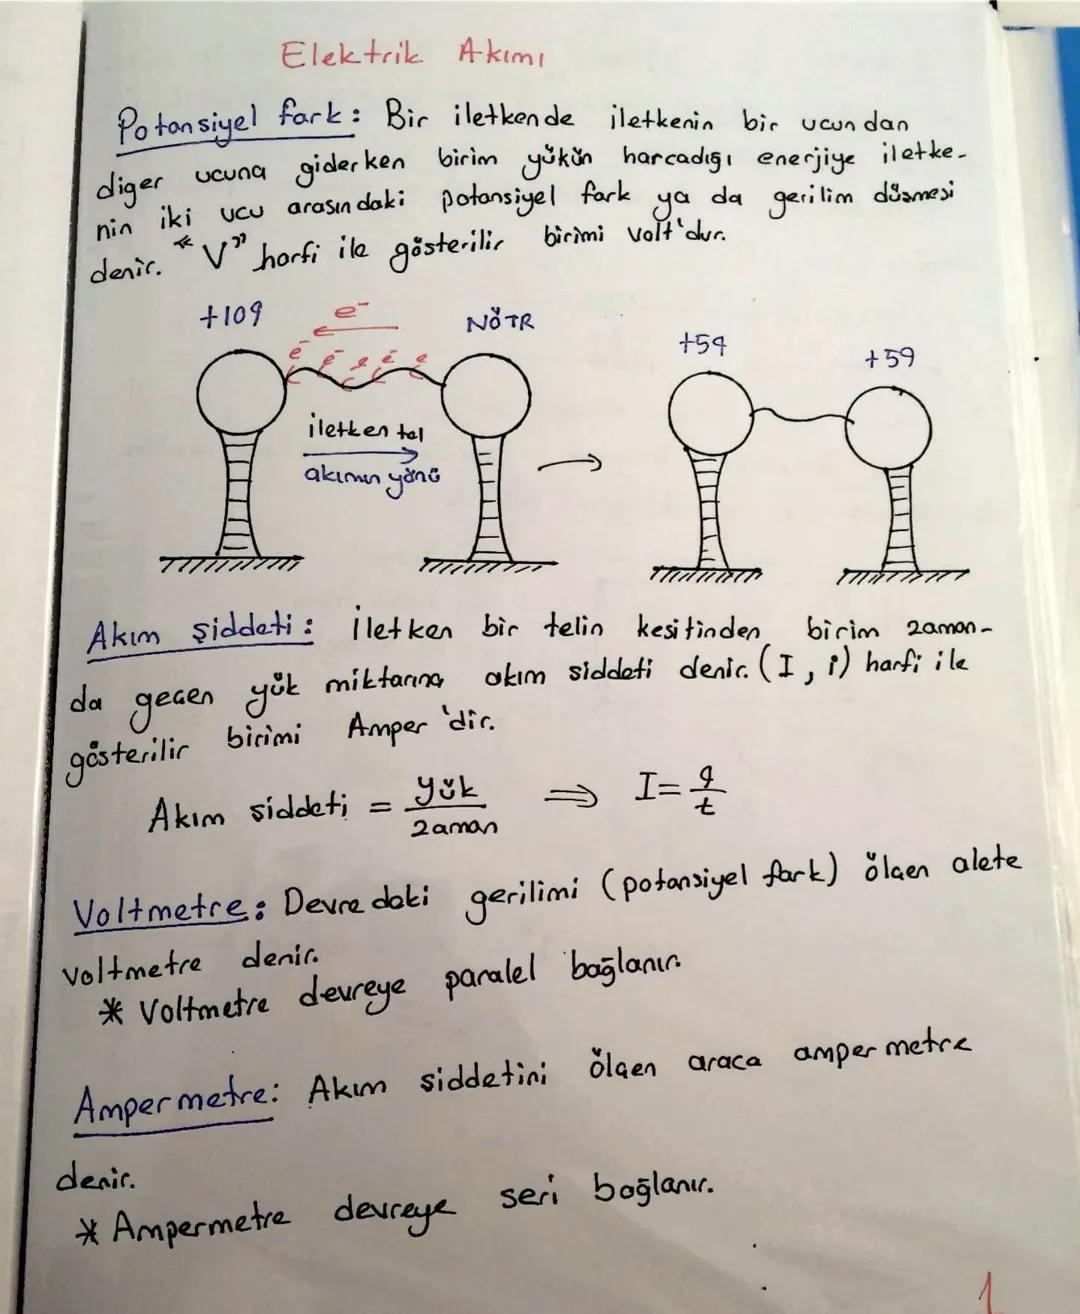 Elektrik Akımı
Potansiyel fark: Bir iletkende iletkenin bir ucundan
diger ucuna giderken birim yükün harcadığı enerjiye iletke-
nin iki ucu arasındaki potansiyel fark ya da gerilim düsmesi
denir. "V" harfi ile gösterilir birimi volt'dur.
+10q e⁻ NÖTR +5q +5q
e⁻ e⁻ e e⁻ e
iletken tel
akımın yönü
Akım şiddeti: İletken bir telin kesitinden birim zaman-
da gecen yük miktarına akım siddeti denir. (I, i) harfi ile
gösterilir birimi Amper 'dir.
Akım siddeti = yük / zaman ⇒ I = q / t
Voltmetre: Devredeki gerilimi (potansiyel fark) ölçen alete
voltmetre denir.
* Voltmetre devreye paralel bağlanır.
Ampermetre: Akım siddetini ölçen araca ampermetre
denir.
* Ampermetre devreye seri bağlanır.
1